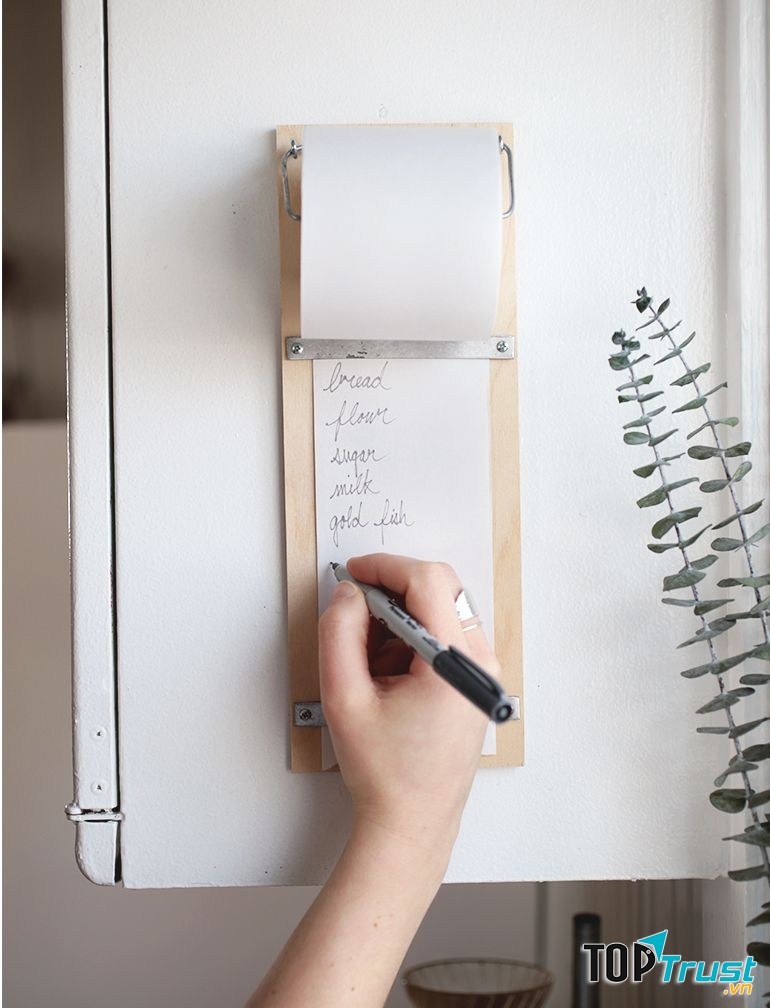 bread
flour
sugar
milk
gold fish
TOPTrust
.vn